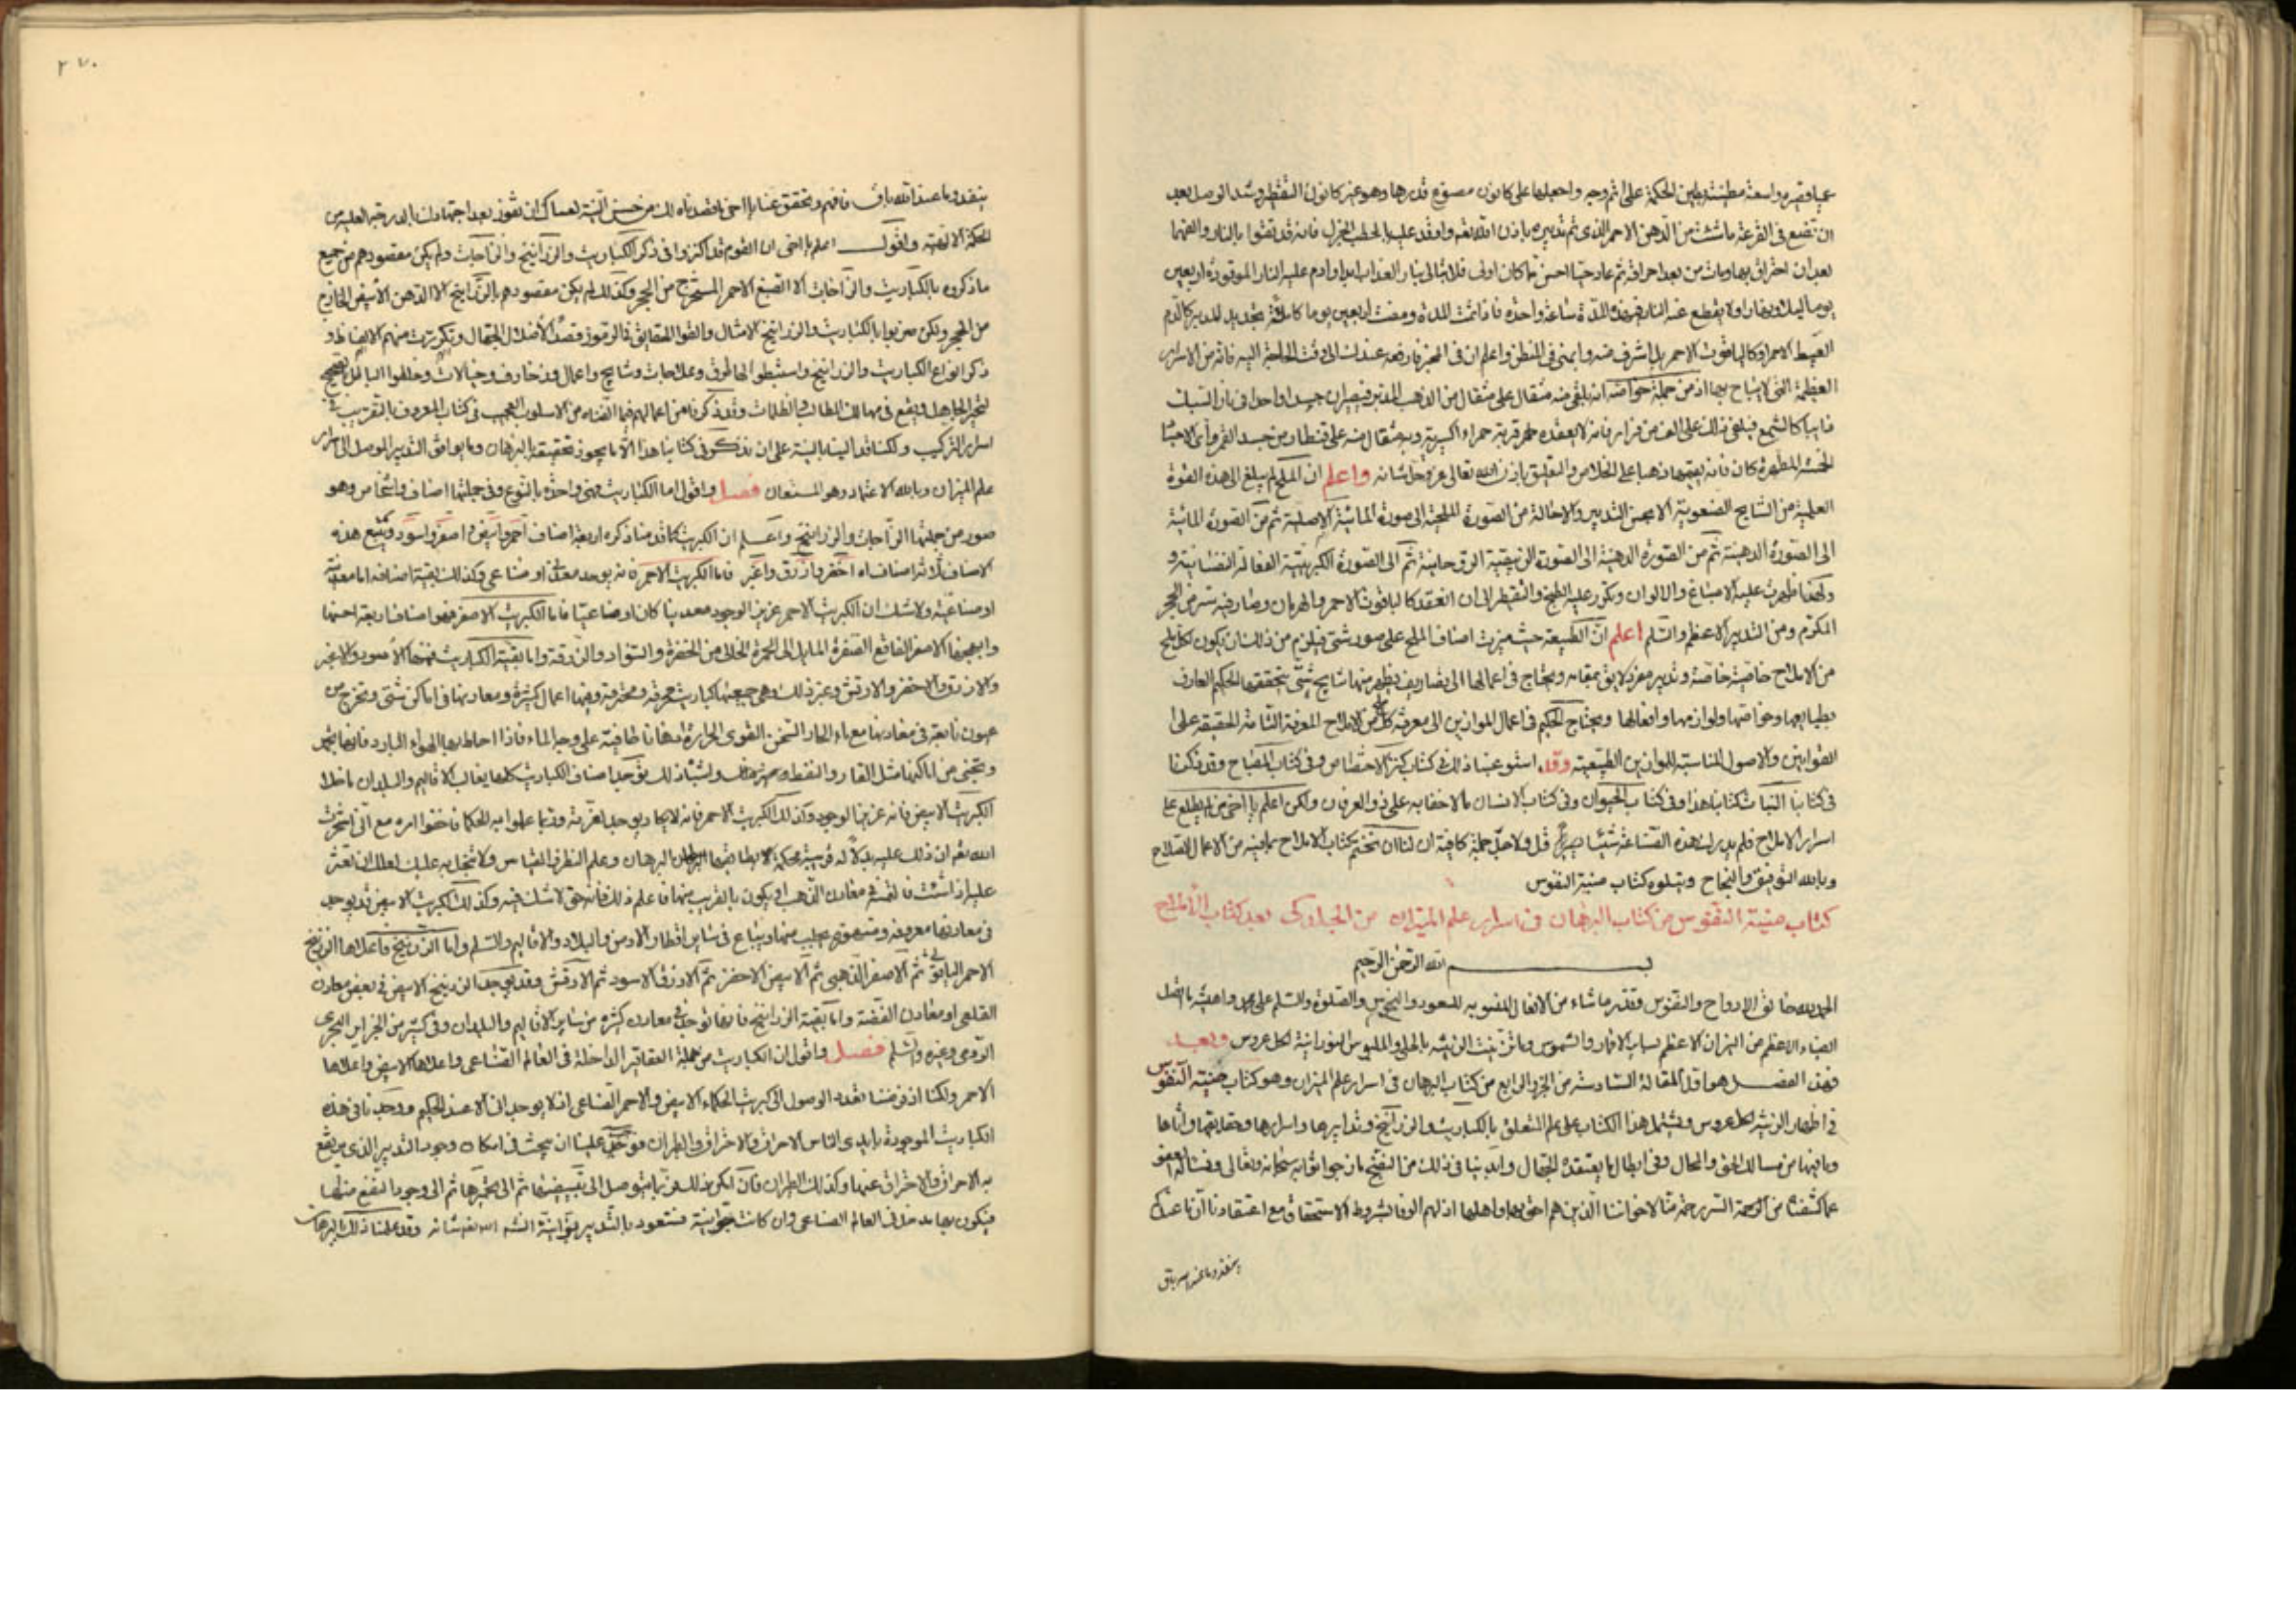 عمياء وقصيره واسعة مطينة بطين الحكمة على اثم وجه واجعلها على كانون مصنوع قدرها وهو غير كانون التقطير وشد الوصل بعد
ان تضع فى القرعة ما شئت من الدهن الاحمر الذى تم تدبيره باذن الله تعه واوقد عليه بالحطب الجزل فانه قد تقوا بالنار والفها
بعد ان احترق بها ومات من بعد احراقه ثم عاد حيا احسن ما كان اولى فلا يبالى بنار العذاب ابدا وادم عليه النار الموقودة اربعين
يوما ليلا ونهارا ولا يقطع عنه النار فى هذه المدة ساعة واحدة فاذا تمت المدة ومضت اربعين يوما كاملة تجد يد للدبير كالدم
العبيط الاحمر او كالياقوت الاحمر بل اشرف منه وابهى فى المنظر واعلم ان فى المخبر فارفعه عندك الى وقت الحاجة اليه فانه من الاسرار
العظيمة التى لا يباح بها اذ من جملة خواصه انه يلقى منه مثقال على مثقال من الذهب المدبر فيصيران جسدا واحدا فى نار السبك
ذايبا كالشمع فيلقى ذلك على الف من فرار فانه لا يعقده حمرة حمراء اكسيرية ومثقال منه على قنطار من جسد القمر وأى الاجساد
الخمسة المطهرة كان فانه يقيمها ذهبا على الخلاص والتعليق باذن الله تعالى عز وجل شانه واعلم ان الملح لم يبلغ الى هذه القوة
العلية من النتايج الصنعوية الا بحسن التدبير والاحالة من الصورة الملحية الى صورة المائية الاصلية ثم من الصورة المائية
الى الصورة الدهنية ثم من الصورة الدهنية الى الصورة الزيبقية الروحانية ثم الى الصورة الكبريتية الفعالة النفسانية و
لهذا ظهرت عليه الاصباغ والالوان وتكرر عليه الطبخ والتقطير الى ان انعقد كالياقوت الاحمر والبهرمان وصار فيه سر من الحجر
المكرم ومن التدبير الاعظم والسلم اعلم ان الطبيعة حيث ميزت اصناف الملح على صور شتى فيلزم من ذلك ان يكون لكل ملح
من الاملاح خاصية خاصة وتدبير مفرد لايق بمقامه ويحتاج فى اعمالها الى تصاريف يظهر منها نتايج شتى يتحققها الحكيم العارف
بطبايعها وخواصها ولوازمها وافعالها ويحتاج الحكيم فى اعمال الموازين الى معرفة كل من الاملاح المعرفة التامة الحقيقة على
القوانين والاصول المناسبة للموازين الطبيعية وقد استوعبنا ذلك فى كتاب كنز الاختصاص وفى كتاب المصباح وقد ذكرنا
فى كتابنا النبات كتابنا هذا وفى كتاب الحيوان وفى كتاب الانسان ما لا خفا به على ذو العرفان ولكن اعلم يا اخى من لم يطلع على
اسرار الاملاح فلم يدرك هذه الصناعة شيئا قل ولا جل جملة كافية ان لنا ان نختم كتاب الاملاح بما فيه من الاعمال الصلاح
وبالله التوفيق والنجاح ويتلوه كتاب منية النفوس
كتاب منية النفوس من كتاب البرهان فى اسرار علم الميزان من الجلدكى بعد كتاب الاملاح
بسم الله الرحمن الرحيم
الحمد لله خالق الارواح والنفوس ومقدر ما شاء من الافعال المنسوبة للسعود والنحوس والصلوة والسلم على محمد واهليته ما اتصل
الضياء الاعظم من النيران الاعظم لسان الاقمار والشموس وما تزينت الزينة بالحلى والملبوس النورانية لكل عروس وبعد
فهذا الفصل هو اول المقالة السادسة من الجزء الرابع من كتاب البرهان فى اسرار علم الميزان وهو كتاب منية النفوس
فى اظهار الزينة لكل عروس ويشتمل هذا الكتاب على علم المتعلق بالكباريت والزرانيخ وتدابيرها واسرارها وحقايقها واثاها
وما فيها من مسالك الحق والمحال وفى ابطال ما يعتقدة الجهال وابدينا فى ذلك من النصح ما نرجوا ثوابه سبحانه وتعالى ونساله العفو
عما كشفنا من الرحمة الستر رحمة منا لاخواننا الذين هم احق بها واهلها اذ لهم الوفا بشروط الاستحقاق مع اعتقادنا ان ما عندك
ينفذ وما عند الله باق
٢٧٠
ينفد وما عند الله باق فافهم وتحقق عنا يا اخى ما قصدناه لك من حسن النية لعساك ان تفوز بعد اجتهادك بالدرجة العليه من
الحكمة الالهية واقول اعلم يا اخى ان القوم قد اكثروا فى ذكر الكباريت والزرانيخ والزاجات ولم يكن مقصودهم من جميع
ما ذكروه بالكباريت والزاجات الا الصبغ الاحمر المستخرج من الحجر وكذلك لم يكن مقصودهم بالزرانيخ الا الدهن الابيض الخارج
من الحجر ولكن ضربوا بالكباريت والزرانيخ الامثال والقوا المقاييق فى الرموز قصدا لاضلال الجهال وتكررت منهم الالفاظ و
ذكر انواع الكباريت والزرانيخ واستنبطوا لها طرق وعلاجات ونتايج واعمال وزخارف وخيالات وخلطوا الباطل بالصحيح
ليتحير الجاهل ويقع فى مهالك المطالب والظلمات وقد ذكرنا من اعمالهم فيما الفناه من الاسلوب العجيب فى كتاب المعروف بالتقريب فى
اسرار التركيب ولكنا قد الينا الية على ان نذكر فى كتابنا هذا الا ما يجوز تحقيقه البرهان وما يوافق التدبير الموصل الى اسرار
علم الميزان وبالله الاعتماد وهو المستعان فصل واقول اما الكباريت فهى واحدة بالنوع وفى جملتها اصناف واشخاص وهو
صور من جملتها الزاجات والزرانيخ واعلم ان الكبريت كما قدمنا ذكره اربعة اصناف احمر وابيض واصفر واسود ويتبع هذه
الاصناف ثلاثة اصناف اخر اخضر وازرق واغبر فاما الكبريت الاحمر فانه يوجد معدنى او صناعى وكذلك بقية اصنافه اما معدنية
او صناعية ولا شك ان الكبريت الاحمر عزيز الوجود معدنيا كان او صناعيا فاما الكبريت الاصفر فهو اصناف اربعة احسنها
وابهجها الاصفر الفاقع الصفرة المايل الى الحمرة الخالى من الخضرة والسواد والزرقة واما بقية الكباريت فمنها الاسود والاغبر
والازرق والاخضر والارقش وغير ذلك وهى جميعها كباريت محرقة ومحترقة وفيها اعمال كثيرة ومعادنها فى اماكن شتى وتخرج من
عيون نابعة فى معادنها مع ماء الحار السخن القوى الحرارة ادهانا طافية على وجه الماء فاذا احاط بها الهواء البارد فانها تجمد
وتجنى من اماكنها مثل القار والنفط وغير ذلك واشباه ذلك يوجد اصناف الكباريت كلها بغالب الاقاليم والبلدان ما خلا
الكبريت الابيض فانه عزيز الوجود وكذلك الكبريت الاحمر فانه لا يكاد يوجد لعزته وقد تا علموا به الحكما فاخفوا امره مع انى استخرت
الله تعه ان ذلك عليه بدلالة قريبة محكمة لا يطابقها البرهان وعلم النظر والقياس ولا نبخل به عليك لعلك ان تعثر
عليه اذا شئت فالتمسه فى معادن الذهب او يكون بالقرب منها فاعلم ذلك فانه حق لا شك فيه وكذلك الكبريت الابيض قد يوجد
فى معادنها معروفة ومشهورة يجلب منها ويباع فى سائر اقطار الارض والبلاد والاقاليم والسلم واما الزرنيخ فاعلاها الزرنيخ
الاحمر الياقوتى ثم الاصفر الذهبى ثم الابيض الاخضر ثم الازرق الاسود ثم الارقش وقد يوجد الزرنيخ الابيض فى بعض معادن
القلعى او معادن الفضة واما بقية الزرانيخ فانها توجد فى معادن كثيرة من ساير الاقاليم والبلدان وفى كثير من الجزاير البحرى
الرومى وغيره والسلم فصل واقول ان الكباريت من جملة العقاقير الداخلة فى العالم الصناعى واعلاها الابيض واعلاها
الاحمر ولكنا اذ فرضنا تعدد الوصول الى كبريت الحكماء الابيض والاحمر الصناعى اذ لا يوجد ان الا عند الحكيم ووجدنا فى هذه
الكباريت الموجودة بايدى الناس الاحراق والاحتراق والطيران فوجب علينا ان نبحث فى امكان وجود التدبير الذى يرتفع
به الاحراق والاحتراق عنها وكذلك الطيران فان لكون ذلك فربما يتوصل الى تبييضها ثم الى تحميرها ثم الى وجود النفع منها
فيكون بها مدخل فى العالم الصناعى وان كانت برانية فتعود بالتدبير جوانية انشا الله تعه شانه وقد علمنا ذلك بالبرهان